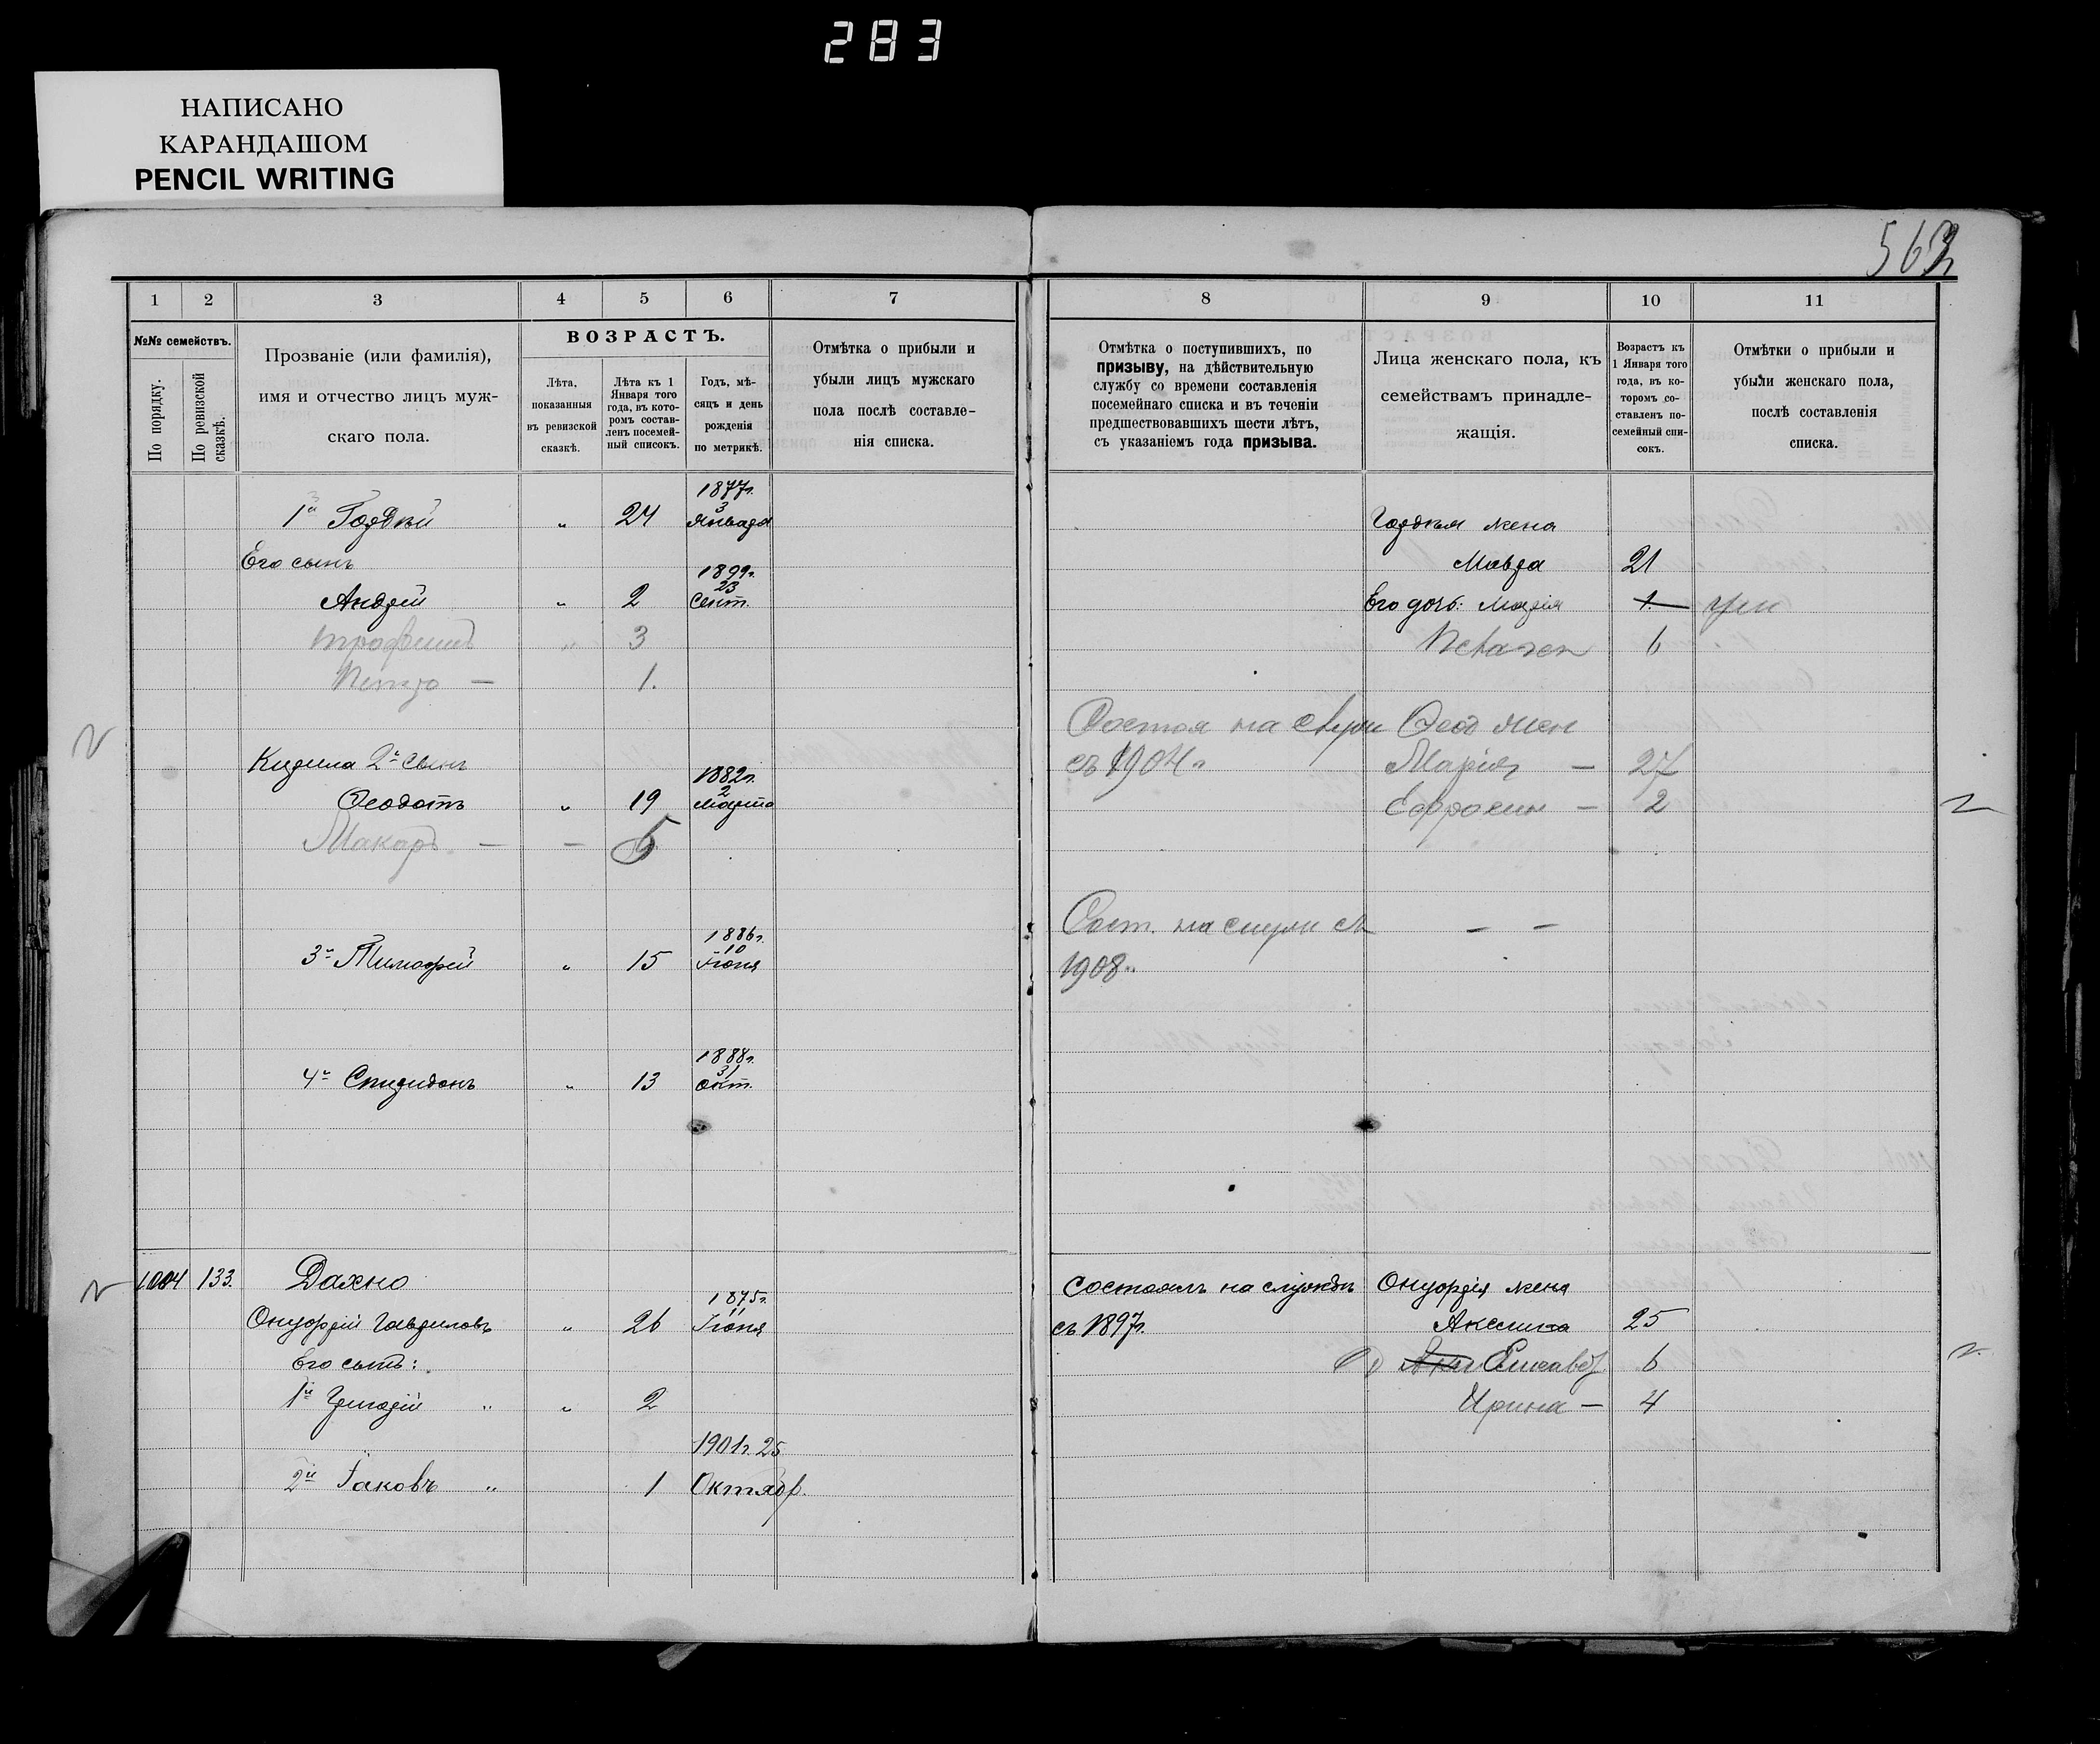 283
НАПИСАНО
КАРАНДАШОМ
PENCIL WRITING
562
1 2 3 4 5 6 7
№№ семействъ.
По порядку.
По ревизской сказкѣ.
Прозваніе (или фамилія),
имя и отчество лицъ муж-
скаго пола.
ВОЗРАСТЪ.
Лѣта,
показанныя
въ ревизской
сказкѣ.
Лѣта къ 1
Января того
года, въ кото-
ромъ состав-
ленъ посемей-
ный списокъ.
Годъ, мѣ-
сяцъ и день
рожденія
по метрикѣ.
Отмѣтка о прибыли и
убыли лицъ мужскаго
пола послѣ составле-
нія списка.
1877г.
1й Гордѣй " 24 3 Января
Его сынъ
1899г.
Андрей " 2 23 Сент.
Трофимъ " 3
Петро — 1.
Кирила 2й сынъ
1882г.
Ѳеодотъ " 19 2 Марта
Макаръ — — 5
1886г.
3й Тимофей " 15 10 Іюня
1888г.
4й Спиридонъ " 13 31 Окт.
1004 133. Дахно
1875г.
Онуфрій Гавриловъ " 26 11 Іюня
Его сынъ:
1й Григорій " " 2
1901г. 25
2й Іаковъ " 1 Октябр.
8 9 10 11
Отмѣтка о поступившихъ, по
призыву, на дѣйствительную
службу со времени составленія
посемейнаго списка и въ теченіи
предшествовавшихъ шести лѣтъ,
съ указаніемъ года призыва.
Лица женскаго пола, къ
семействамъ принадле-
жащія.
Возрастъ къ
1 Января того
года, въ ко-
торомъ со-
ставленъ по-
семейный спи-
сокъ.
Отмѣтки о прибыли и
убыли женскаго пола,
послѣ составленія
списка.
Гордѣя жена
Мавра 21
Его дочь: Марія 1
6
Состоя на служ Ѳеод жен
съ 1904г. Марія — 27
Ефросин — 2
Сост. на служ съ — —
1908г.
Состоялъ на службѣ Онуфрія жена
съ 1897г. Акси­нія 25
Елисавет 6
Ирина — 4